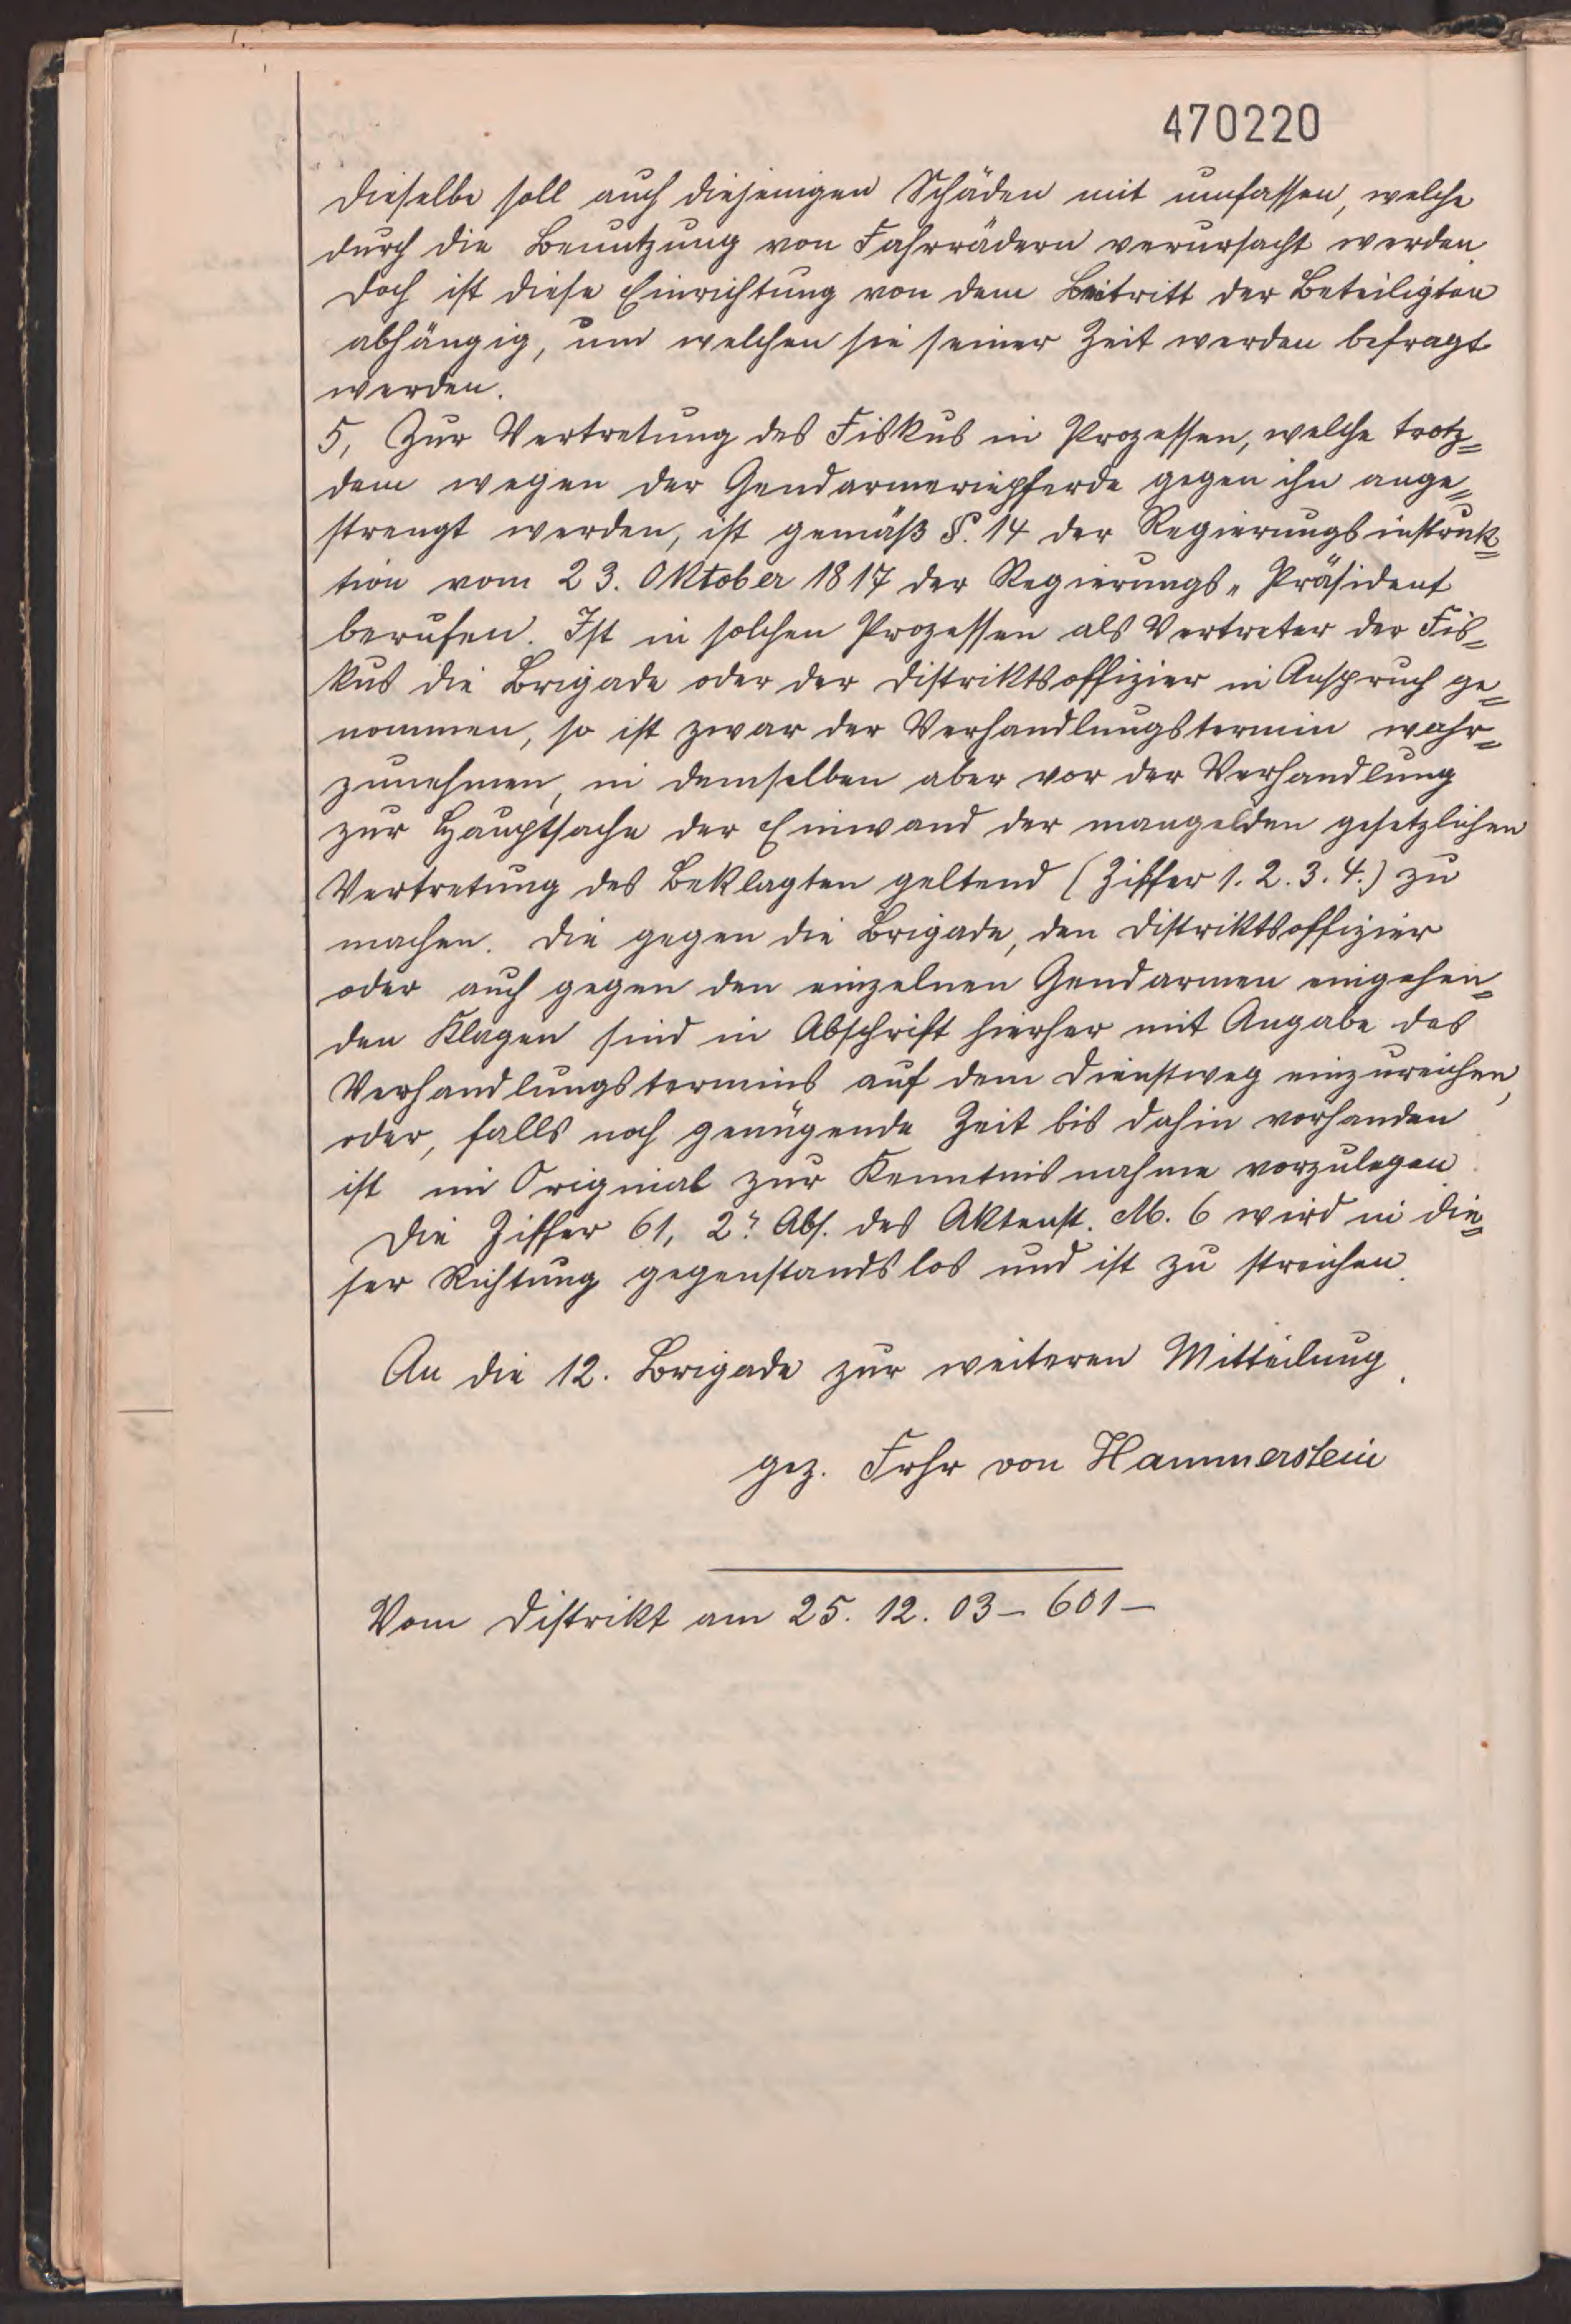 470220
Dieselbe soll auch diejenigen Schäden mit umfassen, welche
durch die Benutzung von Fahrrädern verursacht werden.
Doch ist diese Einrichtung von dem Beitritt der Beteiligten
abhängig, um welchen sie seiner Zeit werden befragt
werden.
5, Zur Vertretung des Fiskus in Prozessen, welche trotz=
dem wegen der Gendarmeriepferde gegen ihn ange=
strengt werden, ist gemäß §. 14 der Regierungsinstruk=
tion vom 23. Oktober 1817 der Regierungs-Präsident
berufen. Ist in solchen Prozessen als Vertreter der Fis=
kus die Brigade oder der Distriktsoffizier in Anspruch ge=
nommen, so ist zwar der Verhandlungstermin wahr=
zunehmen, in demselben aber vor der Verhandlung
zur Hauptsache der Einwand der mangelden gesetzlichen
Vertretung des Beklagten geltend (Ziffer 1. 2. 3. 4.) zu
machen. Die gegen die Brigade, den Distriktsoffizier
oder auch gegen den einzelnen Gendarmen eingehen=
den Klagen sind in Abschrift hierher mit Angabe des
Verhandlungstermins auf dem Dienstweg einzureichen,
oder, falls noch genügende Zeit bis dahin vorhanden
ist im Original zur Kenntnisnahme vorzulegen.
Die Ziffer 61, 2r Abs. des Aktenst. M. 6 wird in die=
ser Richtung gegenstandslos und ist zu streichen.
An die 12. Brigade zur weiteren Mitteilung.
gez. Frhr von Hammerstein
Vom Distrikt am 25. 12. 03 – 601 –